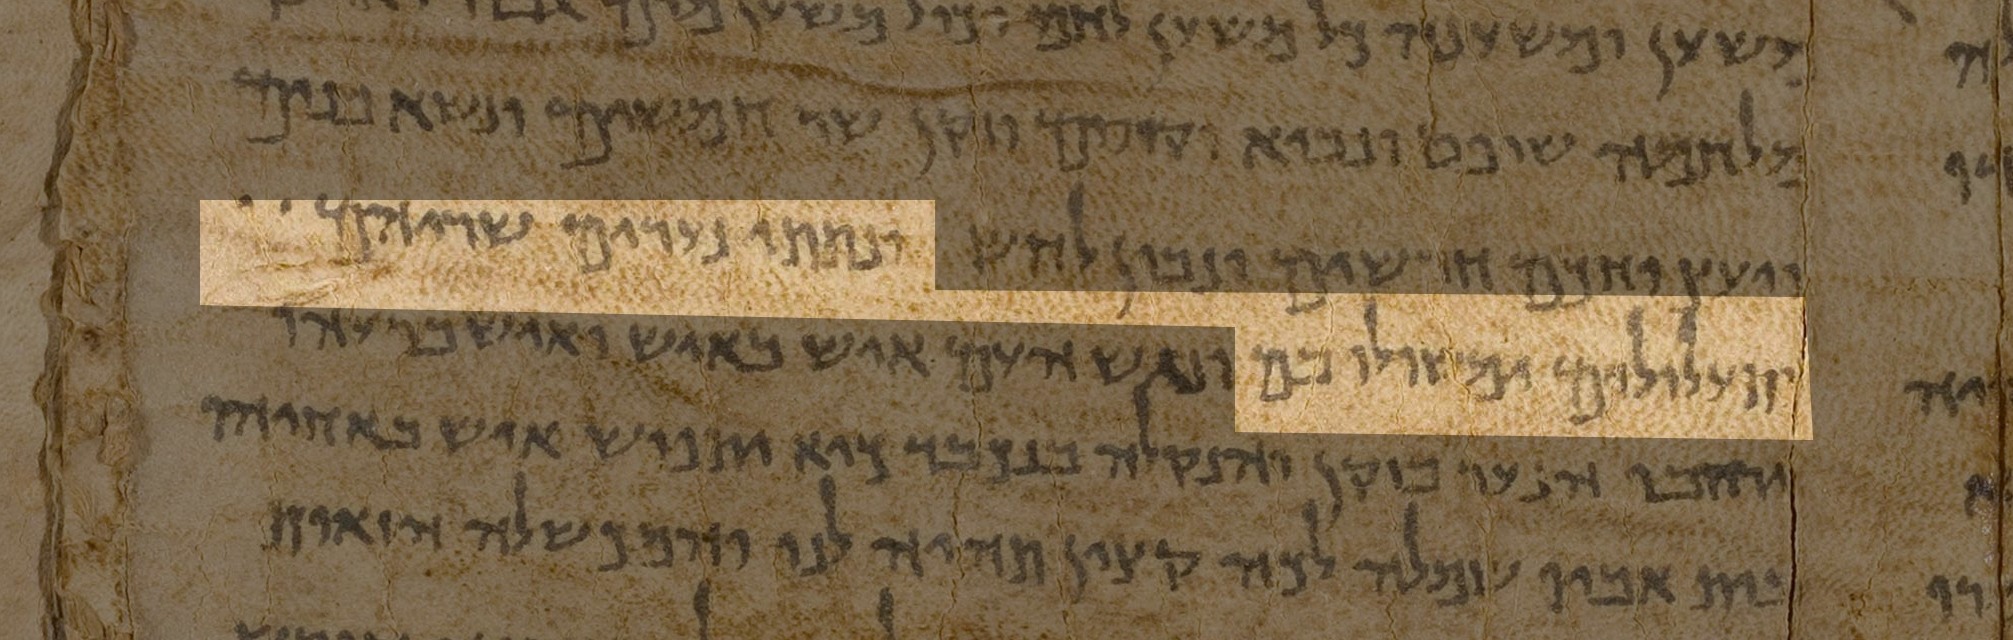 משען ומשענה כל משען לחם וכול משען מים
מלחמה שופט ונביא וקוסם וזקן שר חמשים ונשא פנים
ויעץ וחכם חרשים ונבון לחש ונתתי נערים שריהם
ותעלולים ימשולו בם ונגש העם איש באיש ואיש ברעהו
ירהבו הנער בזקן והנקלה בנכבד כיא יתפוש איש באחיהו
בית אביו שמלה לכה קצין תהיה לנו והמכשלה הזואת